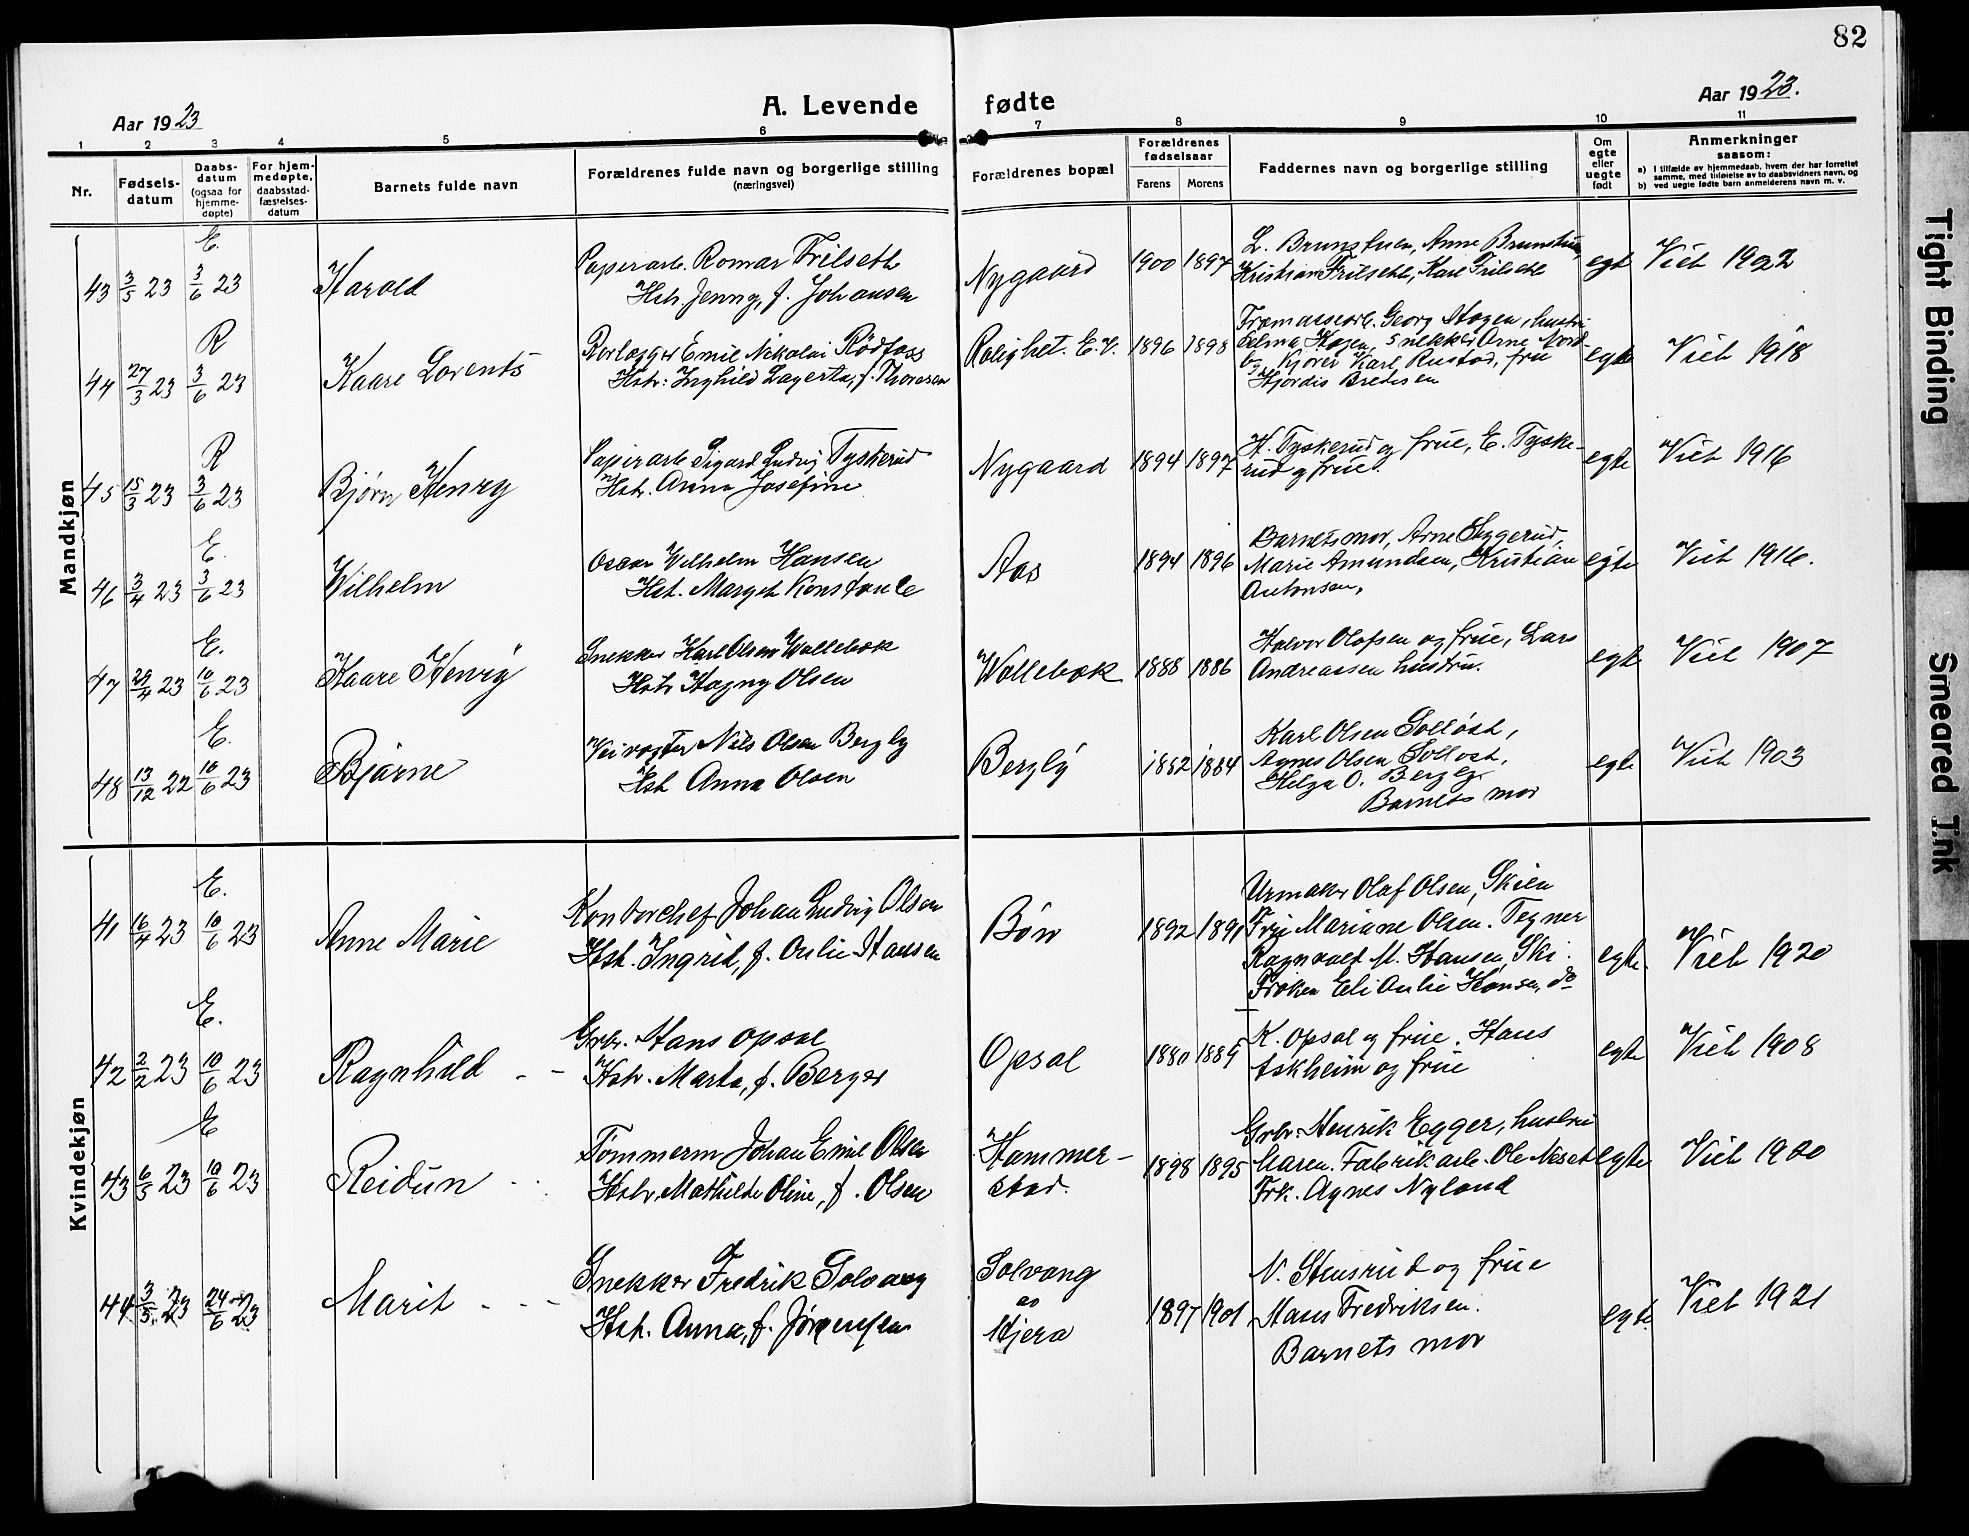 82
Aar 1923
A. Levende fødte
Aar 1923.
1 2 3 4 5 6 7 8 9 10 11
Nr.
Fødsels-
datum
Daabs-
datum
(ogsaa for
hjemme-
døpte)
For hjem-
medøpte,
daabsstad-
fæstelses-
datum
Barnets fulde navn
Forældrenes fulde navn og borgerlige stilling
(næringsvei)
Forældrenes bopæl
Forældrenes
fødselsaar
Farens Morens
Faddernes navn og borgerlige stilling
Om
egte
eller
uegte
født
Anmerkninger
saasom:
a) I tilfælde av hjemmedaab, hvem der har forrettet
samme, med tilføielse av to daabsvidners navn, og
b) ved uegte fødte barn anmelderens navn m. v.
Mandkjøn
E.
43 3/5 23 3/6 23 Harald
Papirarb. Romar Frilseth
Hstr. Jenny, f. Johansen
Nygaard 1900 1897
L. Brunstuen, Anne Brunstuen,
Kristian Frilseth, Karl Frilseth
egte Viet 1922
R
44 27/3 23 3/6 23 Kaare Lorents
Rørlægger Emil Nikolai Rødfoss
Hstr: Inghild Lagerta, f. Thoresen
Rolighet. E. V. 1896 1898
Træmassearb. Georg Hagen, hustru
Selma Hagen, snekker Arne Nord-
by, Kjører Karl Rustad, frue
Hjørdis Bredesen
egte Viet 1918
R
45 15/3 23 3/6 23 Bjørn Henry
Papirarb Sigurd Ludvig Tyskerud
Hstr. Anna Josefine
Nygaard 1894 1897
H. Tyskerud og frue, E. Tyske-
rud og frue.
egte Viet 1916
E.
46 3/4 23 3/6 23 Wilhelm
Oscar Wilhelm Hansen
Hst. Margit Konstance
Aas 1894 1896
Barnets mor, Arne Syggerud,
Marie Amundsen, Kristian
Antonsen,
egte Viet 1916.
E.
47 29/4 23 10/6 23 Kaare Henry
Snekker Karl Olsen Wallebæk
Hstr Hagny Olsen
Wollebæk 1888 1886
Halvor Olafsen og frue, Lars
Andreassen hustru.
egte Viet 1907
E.
48 13/12 22 10/6 23 Bjarne
Veivogter Nils Olsen Bergby
Hst Anna Olsen
Bergby 1882 1884
Karl Olsen Solløst,
Agnes Olsen Solløst,
Helga O. Bergby
Barnets mor
egte Viet 1903
Kvindekjøn
E.
41 16/4 23 10/6 23 Anne Marie
Kontorchef Johan Ludvig Olsen
Hst. Ingrid, f. Aulie Hansen
Bøn 1892 1891
Urmaker Olaf Olsen, Skien
Frue Mariane Olsen. Tegner
Ragnvald M. Hansen, Ski.
Frøken Eli Aulie Hansen, do
egte. Viet 1920
E.
42 2/2 23 10/6 23 Ragnhild - -
Grbr. Hans Opsal
Hstr. Marta, f. Berger
Opsal 1880 1889
K. Opsal og frue. Hans
Askheim og frue
egte Viet 1908
E
43 6/5 23 10/6 23 Reidun - -
Tømmerm Johan Emil Olsen
Hstr. Mathilde Oline, f. Olsen
Hammer-
stad. 1898 1895
Grbr. Henrik Egger, hustru
Maren. Fabrikarb. Ole Neset
Frk. Agnes Nyland
egte Viet 1920
44 3/5 23 24/6 23 Marit - - -
Snekker Fredrik Solvang
Hst. Anna, f. Jørgensen
Solvang
av
Mjera 1897 1901
N. Stensrud og frue
Hans Fredriksen.
Barnets mor
egte Viet 1921
Tight Binding
Smeared Ink